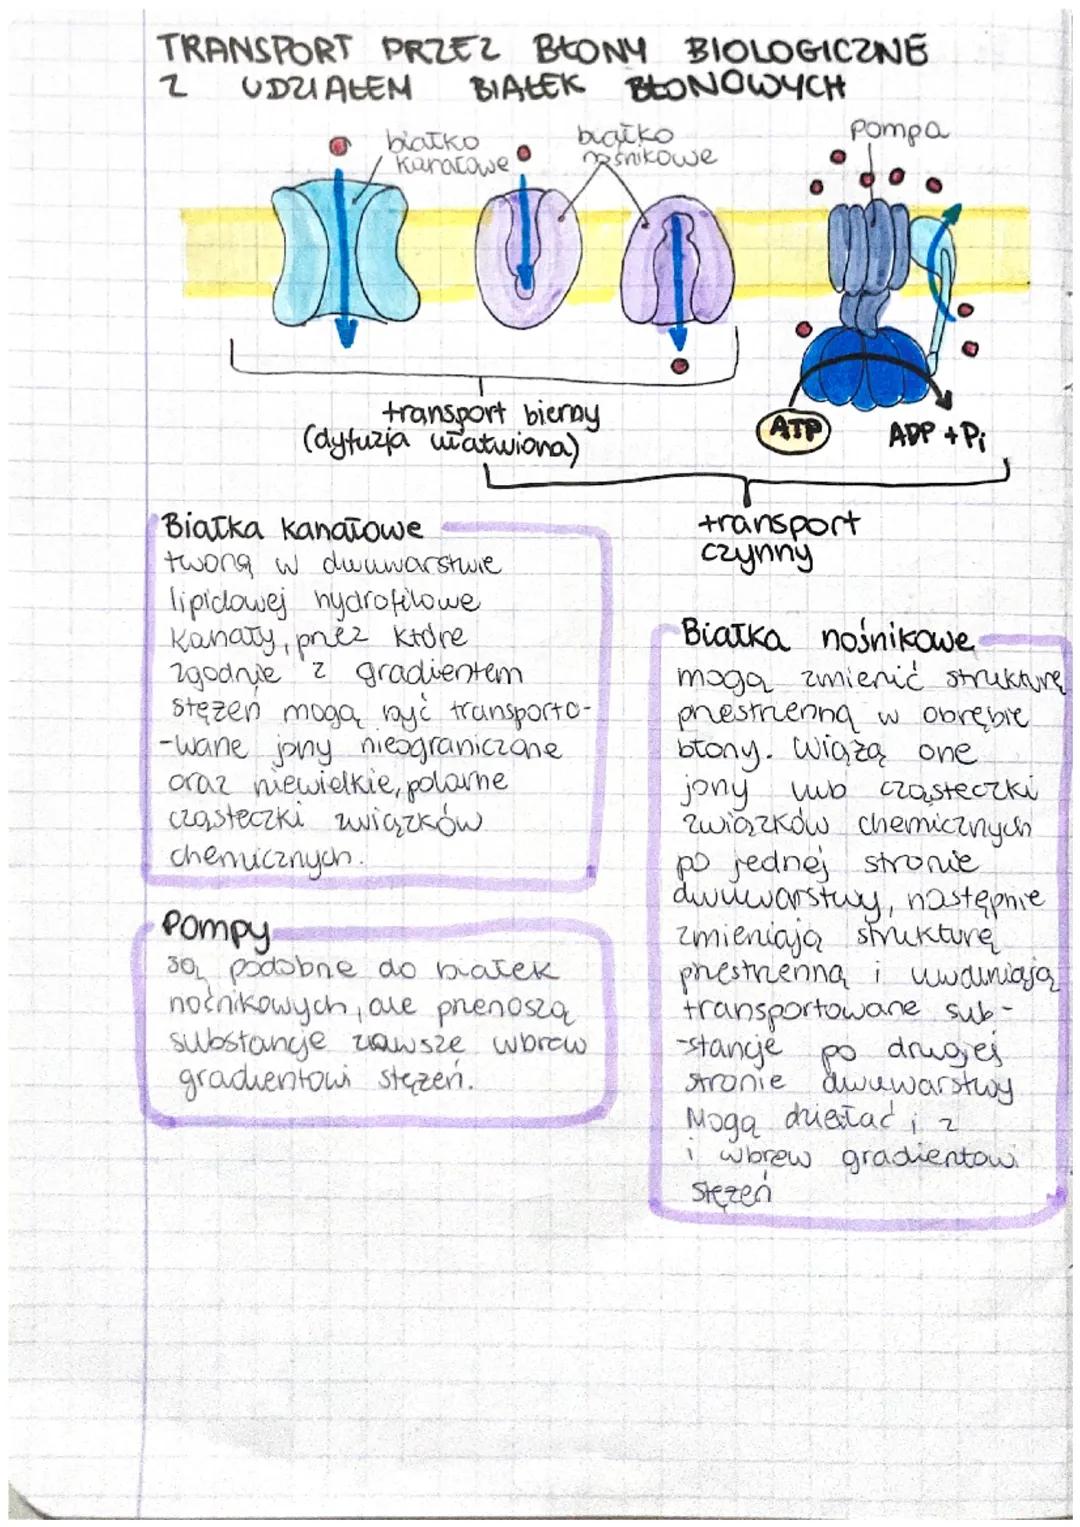 TRANSPORT PRZEZ BŁONY BIOLOGICZNE
Z UDZIAŁEM BIAŁEK BŁONOWYCH
białko
kanałowe
białko
nośnikowe
pompa
transport bierny
(dyfuzja ułatwiona)
ATP
ADP + Pi
transport
czynny
Białka kanałowe
tworzą w dwuwarstwie
lipidowej hydrofilowe
kanały, przez które
zgodnie z gradientem
stężeń mogą być transporto-
-wane jony nieograniczone
oraz niewielkie, polarne
cząsteczki związków
chemicznych.
Pompy
są podobne do białek
nośnikowych, ale przenoszą
substancje zawsze wbrew
gradientowi stężeń.
Białka nośnikowe
mogą zmienić strukturę
przestrzenną w obrębie
błony. Wiążą one
jony lub cząsteczki
związków chemicznych
po jednej stronie
dwuwarstwy, następnie
zmieniają strukturę
przestrzenną i uwalniają
transportowane sub-
-stancje po drugiej
stronie dwuwarstwy
Mogą działać i z
i wbrew gradientowi
stężeń